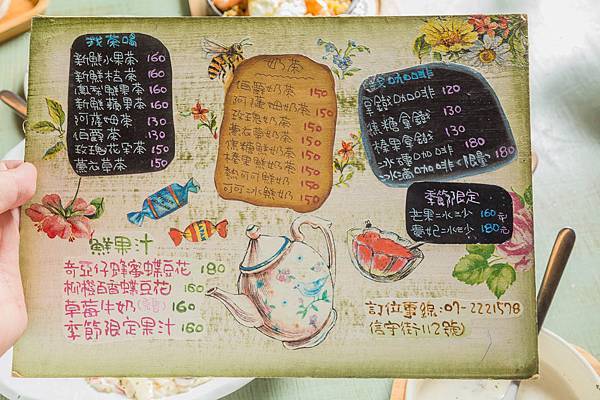 找茶喝
新鮮水果茶 160
新鮮桔茶 160
鳳梨鮮果茶 160
新鮮蘋果茶 160
阿薩姆茶 130
伯爵茶 130
玫瑰花果茶 150
薰衣草茶 150
奶茶
伯爵奶茶 150
阿薩姆奶茶 150
玫瑰奶茶 150
薰衣草奶茶 150
焦糖鮮奶茶 150
榛果鮮奶茶 150
熱可可鮮奶 150
可可冰鮮奶 150
咖啡
拿鐵咖啡 120
焦糖拿鐵 130
榛果拿鐵 130
冰釀咖啡 180
冰滴咖啡<限量> 180
季節限定
芒果冰沙 160元
180元
鮮果汁
奇亞仔蜂蜜蝶豆花 180
柳橙百香蝶豆花 160
草莓牛奶(季節) 160
季節限定果汁 160
訂位專線:07-2221578
信宇街112號